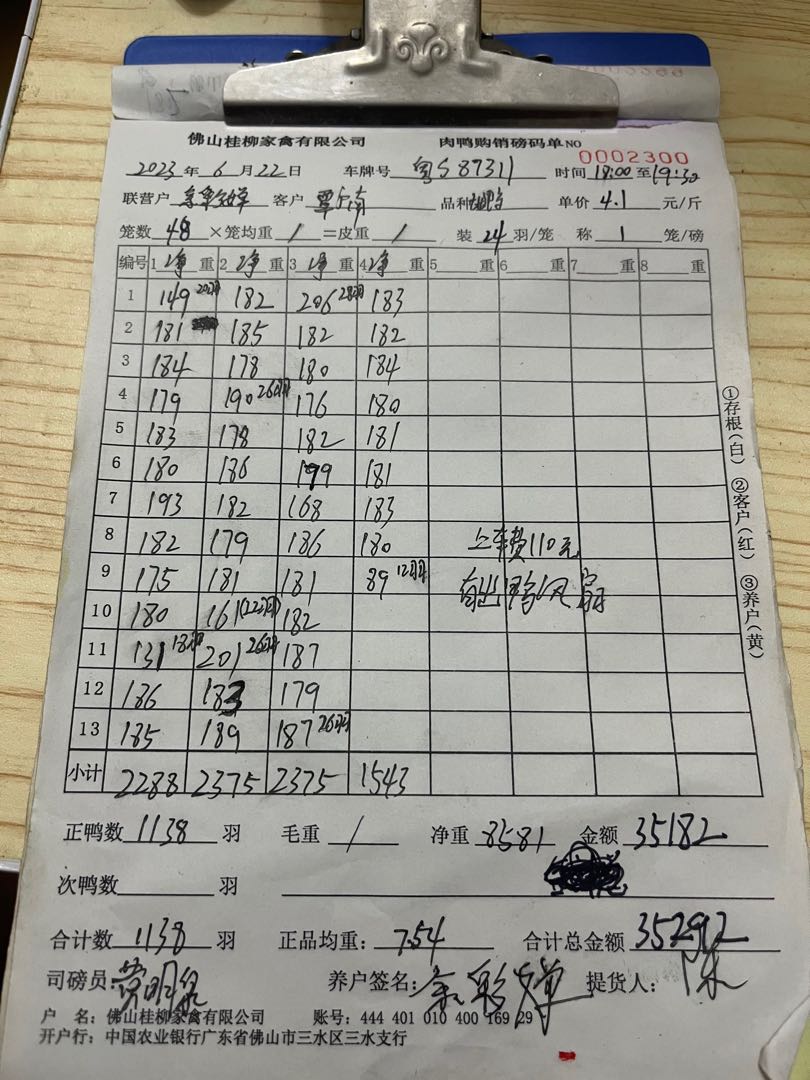 佛山桂柳家禽有限公司 肉鸭购销磅码单 NO 0002300
2023年6月22日 车牌号 粤S87311 时间 18:00至19:30
联营户 余彩婵 客户 覃尔南 品种 单价 4.1 元/斤
笼数 48 ×笼均重 / =皮重 / 装 24 羽/笼 称 1 笼/磅
编号 1净重 2净重 3净重 4净重 5 重 6 重 7 重 8 重
1 149 20羽 182 206 28羽 183
2 181 185 182 182
3 184 178 180 184
4 179 190 26羽 176 180
5 183 178 182 181
6 180 186 199 181
7 193 182 168 183
8 182 179 186 180 上车费110元
9 175 181 181 89 12羽 自出鸭风扇
10 180 161(22羽) 182
11 131 18羽 201 26羽 187
12 186 183 179
13 185 189 187 26羽
小计 2288 2375 2375 1543
①存根(白) ②客户(红) ③养户(黄)
正鸭数 1138 羽 毛重 / 净重 8581 金额 35182
次鸭数 羽
合计数 1138 羽 正品均重: 7.54 合计总金额 35292
司磅员: 黄明泉 养户签名: 余彩婵 提货人: 陈
户 名: 佛山桂柳家禽有限公司 账号: 444 401 010 400 169 29
开户行: 中国农业银行广东省佛山市三水区三水支行